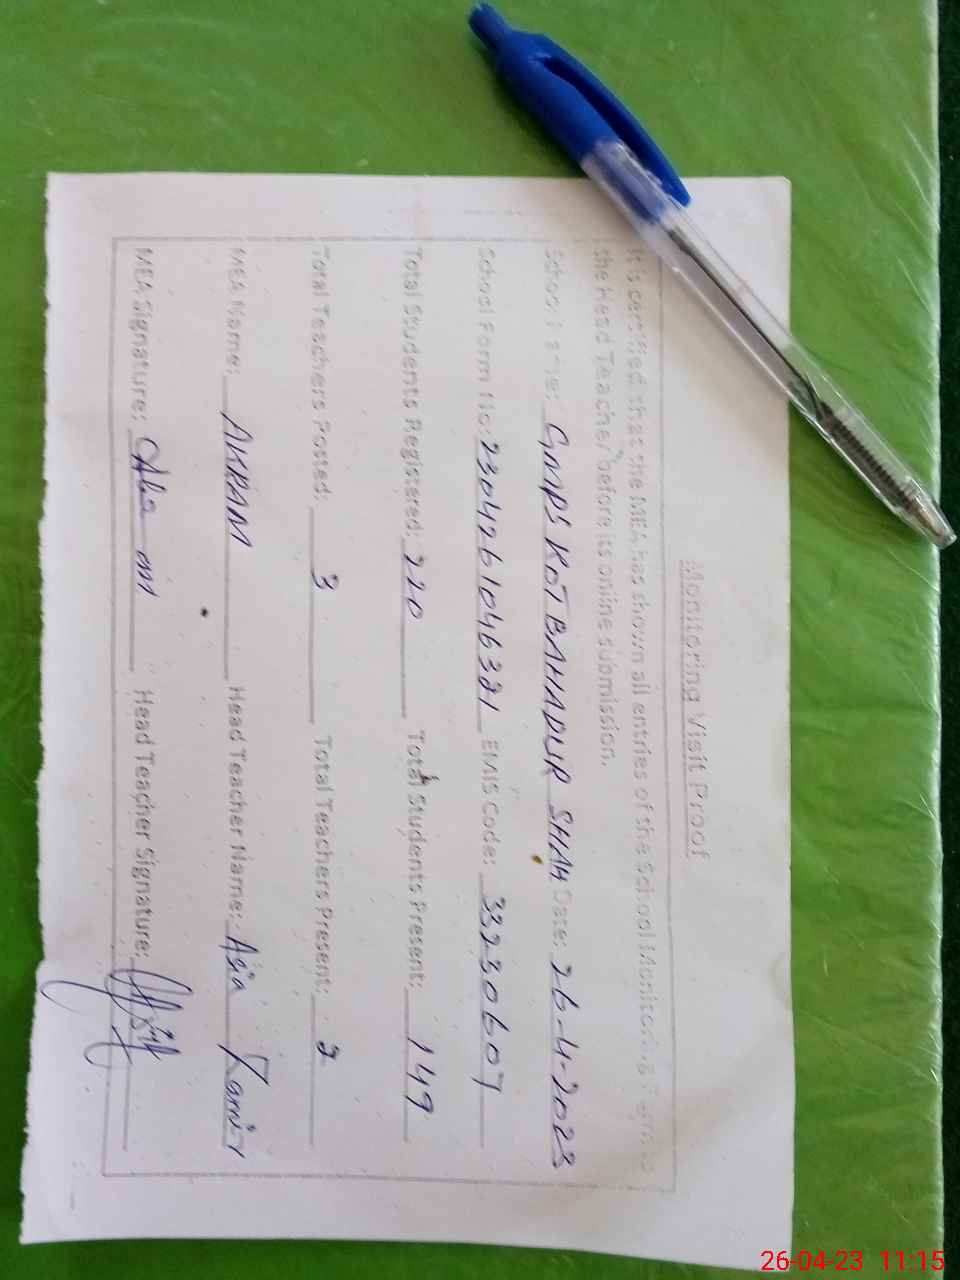 Monitoring Visit Proof
It is certified that the MEA has shown all entries of the School Monitoring Form to
the Head Teacher before its online submission.
School Name: GMPS KOT BAHADUR SHAH Date: 26-4-2023
School Form No: EMIS Code: 33230607
Total Students Registered: 220 Total Students Present: 149
Total Teachers Posted: 3 Total Teachers Present: 2
MEA Name: AKRAM Head Teacher Name: Asia
MEA Signature: Head Teacher Signature:
26-04-23 11:15